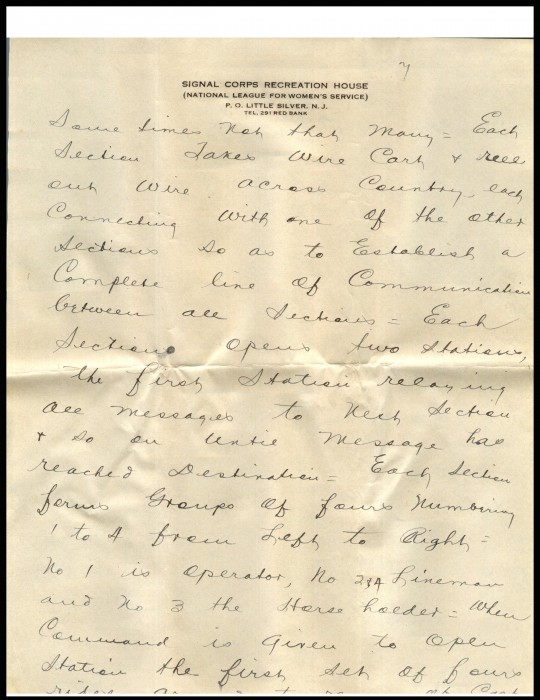 7
SIGNAL CORPS RECREATION HOUSE
(NATIONAL LEAGUE FOR WOMEN'S SERVICE)
P. O. LITTLE SILVER, N. J.
TEL. 291 RED BANK
Some times Not that Many = Each
Section Takes Wire Cart & reel
out Wire across Country, each
Connecting With one Of the other
Sections So as to Establish a
Complete line Of Communication
between all Sections = Each
Section opens two Stations,
the first Station relaying
all messages to Next Section
& so on Until Message has
reached Destination = Each Section
forms Groups Of fours Numbering
1 to 4 from Left to Right =
No 1 is operator, No 2&4 Lineman
and No 3 the Horse holder = When
Command is Given to Open
Station the first Set Of fours